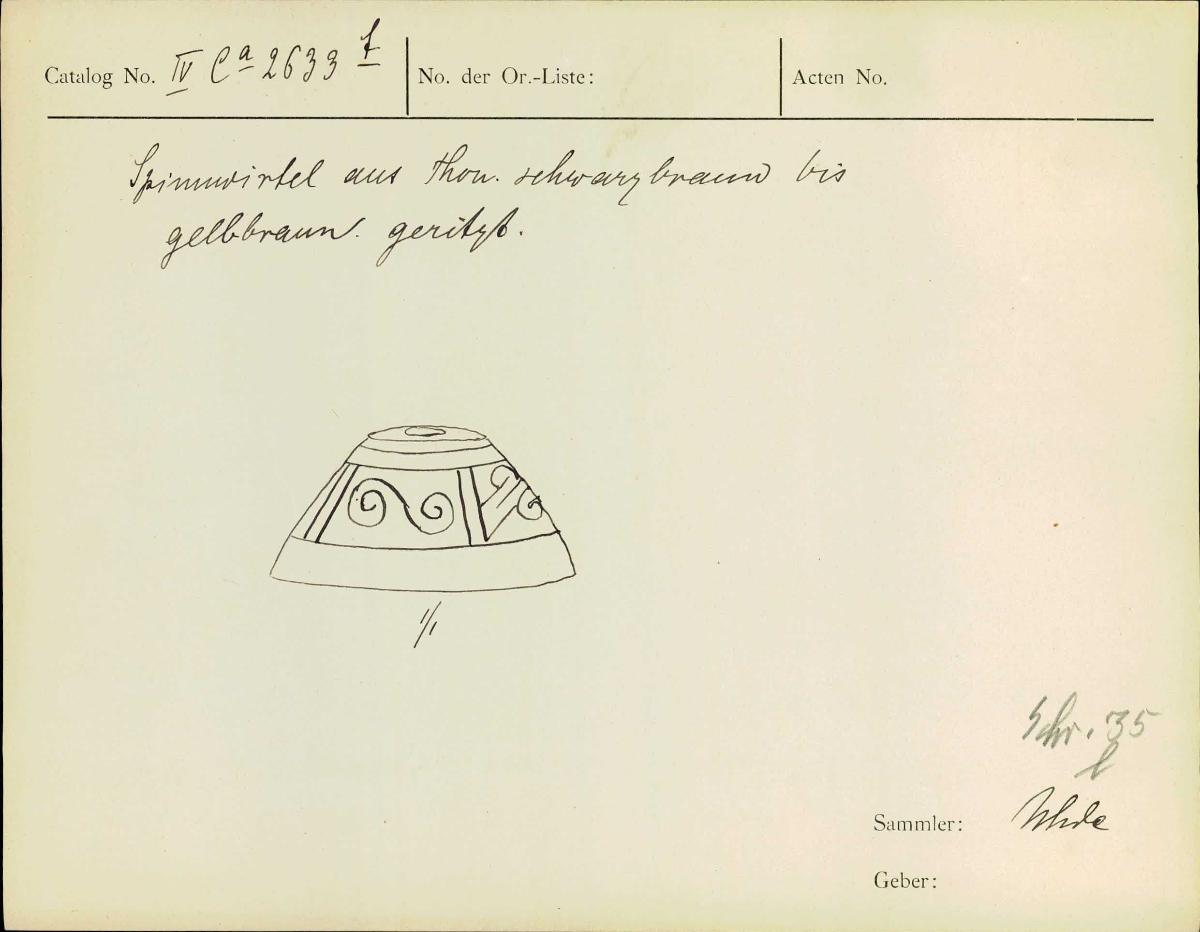 Catalog No. IV Ca 2633 f
No. der Or.-Liste:
Acten No.
Spinnwirtel aus Thon. schwarzbraun bis
gelbbraun. geritzt.
1/1
Schr. 35
l
Sammler: Uhde
Geber: